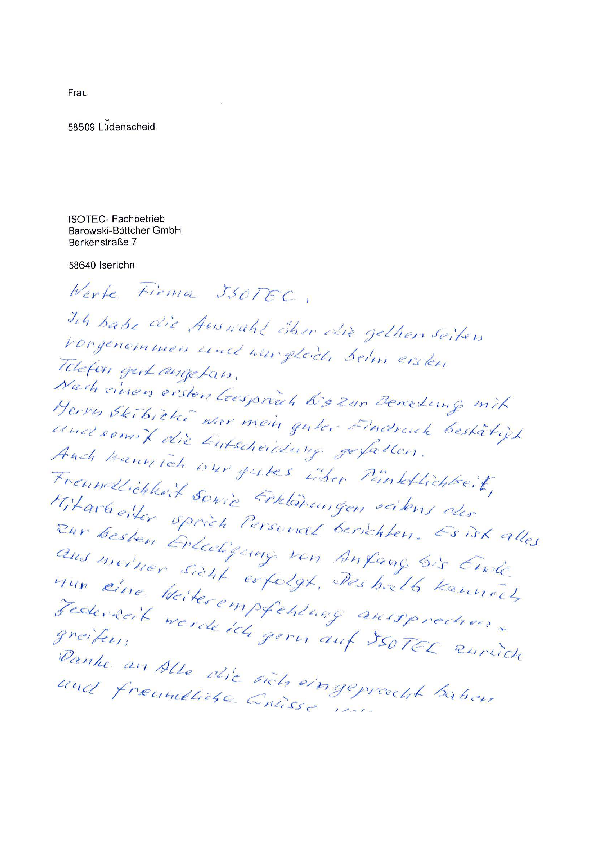 Frau
58509 Lüdenscheid
ISOTEC- Fachbetrieb
Barowski-Böttcher GmbH
Barkenstraße 7
58640 Iserlohn
Werte Firma ISOTEC,
Ich habe die Auswahl über die gelben Seiten
vorgenommen und war gleich beim ersten
Telefon gut angetan.
Nach einen ersten Gespräch bis zur Beratung mit
Herrn war mein guter Eindruck bestätigt
und somit die Entscheidung gefallen.
Auch kann ich nur gutes über Pünktlichkeit,
Freundlichkeit sowie Erklärungen seitens der
Mitarbeiter sprich Personal berichten. Es ist alles
zur besten Erledigung von Anfang bis Ende
aus meiner Sicht erfolgt. Deshalb kann ich
nun eine Weiterempfehlung aussprechen.
Jederzeit werde ich gern auf ISOTEC zurück
greifen.
Danke an Alle die sich eingebracht haben
und freundliche Grüsse ....